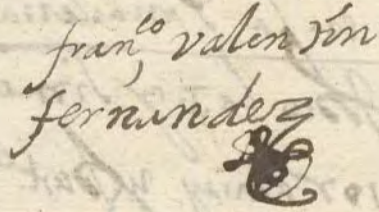 fran,co valentín
fernandez